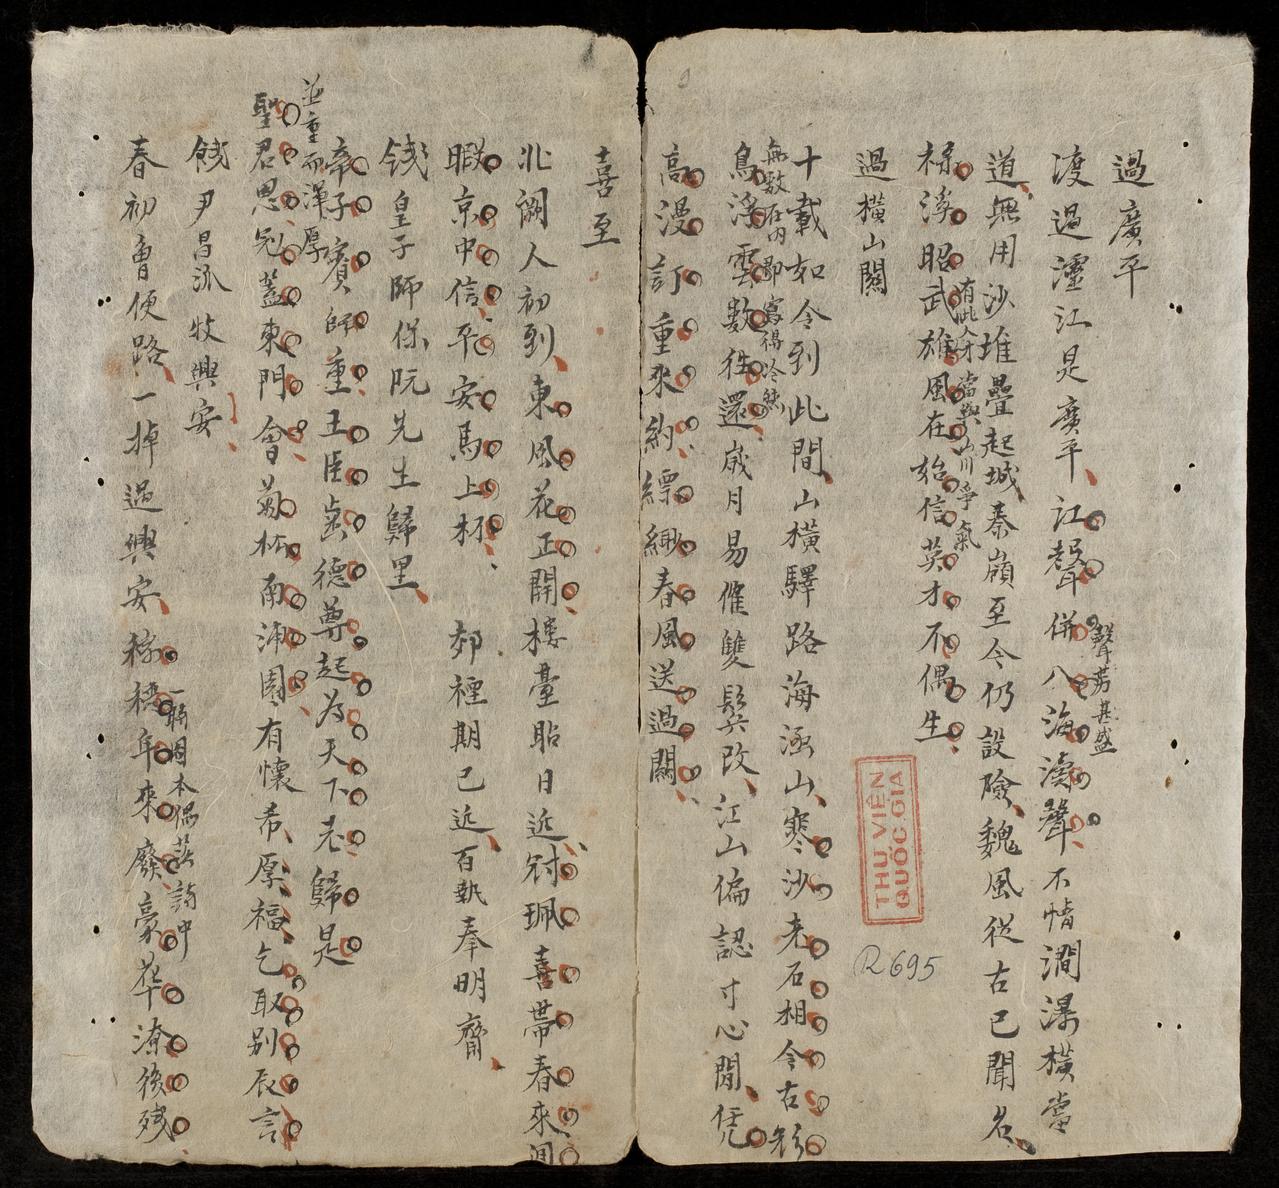 過廣平
渡過瀍江是廣平江聲併八海濤聲不惜澗瀑橫當
聲勢甚盛
道無用沙堆疊起城秦嶺至今仍設險魏風從古已聞名
有此今才當與山川爭氣
祿溪昭武雄風在始信英才不偶生
過橫山關
十載如今到此間山橫驛路海涵山寒沙老石相今古
無數在內即寫得冷然
鳥浮雲數往還歲月易催雙鬂改江山偏認寸心閒凭
高漫訂重來約縹緲春風送過關
THƯ VIỆN
QUỐC GIA
R695
喜至
北闕人初到東風花正開樓臺貼日近冠珮喜帶春來
暇京中信平安馬上杯 郊禋期已近百執奉明齊
餞皇子師保阮先生歸里
帝子賓師重王臣齒德尊起為天下老歸是
並重而渾厚
聖君恩冠蓋東門會菊松南浦園有懷希厚福乞取別辰言
餞尹昌派牧興安
春初曾便路一掉過興安 年來廢豪華潦後殘
一時國本偶於詩中